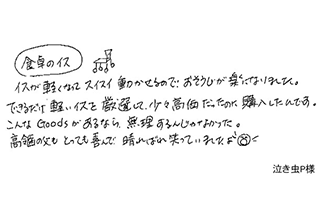 食卓のイス
イスが軽くなってスイスイ動かせるので、おそうじが楽になりました。
できるだけ軽いイスを厳選して、少々高価だったのに購入したんです。
こんなGoodsがあるなら、無理するんじゃなかった。
高齢の父もとっても喜んで、晴ればれ笑っていましたよ
泣き虫P様